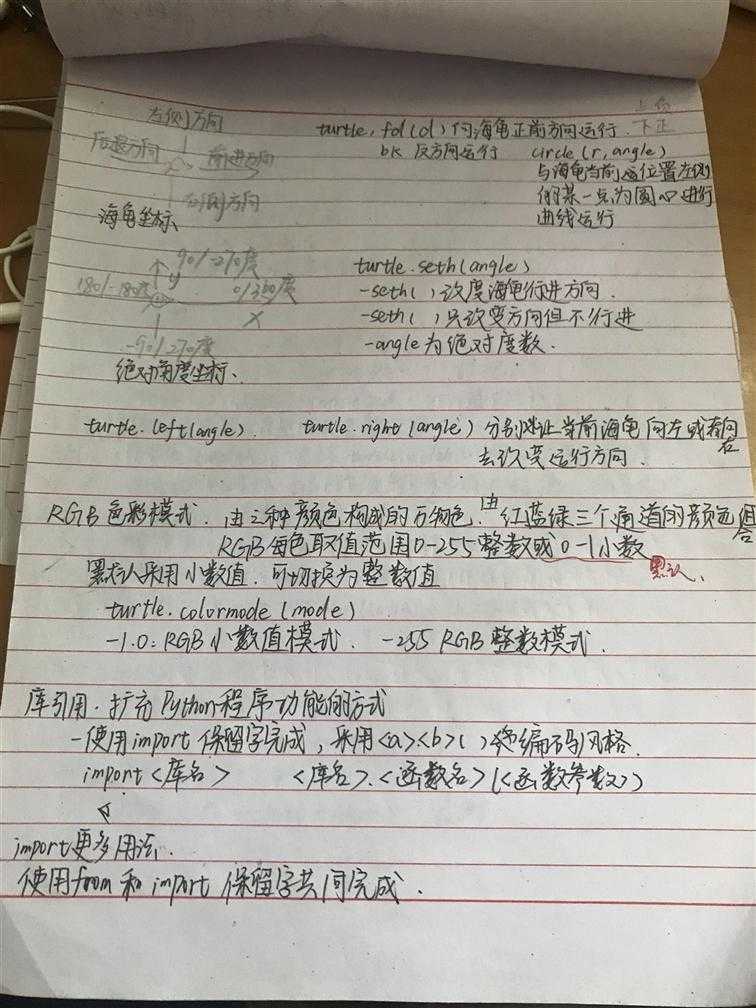 左侧方向
后退方向 前进方向
右侧方向
海龟坐标、
turtle.fd(d) 向海龟正前方向运行. 上负
下正
bk 反方向运行 circle(r,angle)
与海龟当前运位置左侧
的某一点为圆心进行
曲线运行
90/-270度
y
180/-180度 0/360度
x
-90/270度
绝对角度坐标、
turtle.seth(angle)
-seth( )改度海龟行进方向.
-seth( )只改变方向但不行进
-angle为绝对度数.
turtle.left(angle). turtle.right(angle) 分别让当前海龟向左或向右
去改变运行方向.
RGB色彩模式. 由三种颜色构成的万物色. 由红蓝绿三个通道的颜色组合
RGB每色取值范围0-255整数或0-1小数
默认、
默认采用小数值. 可切换为整数值
turtle.colormode(mode)
-1.0:RGB小数值模式. -255 RGB整数模式.
库引用.扩充Python程序功能的方式
-使用import保留字完成,采用<a><b>( )编码风格.
import<库名> <库名>.<函数名>(<函数参数>)
import更多用法.
使用from和import保留字共同完成.